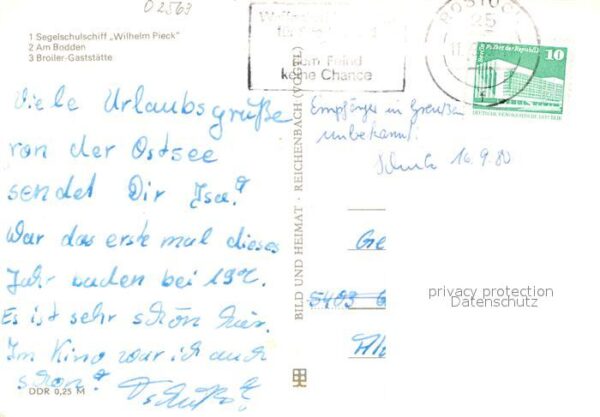 02563
1 Segelschulschiff „Wilhelm Pieck"
2 Am Bodden
3 Broiler-Gaststätte
Viele Urlaubsgrüße
von der Ostsee
sendet Dir Isa.
War das erste mal dieses
Jahr baden bei 19°C.
Es ist sehr schön hier.
Im Kino war ich auch
schon.
DDR 0,25 M
BILD UND HEIMAT · REICHENBACH (VOGTL)
dem Feind
keine Chance
ROSTOCK
25
Berlin, Palast der Republik
10
DEUTSCHE DEMOKRATISCHE REPUBLIK
Empfänger in Greußen
unbekannt.
16.9.80
Gre
privacy protection
Datenschutz